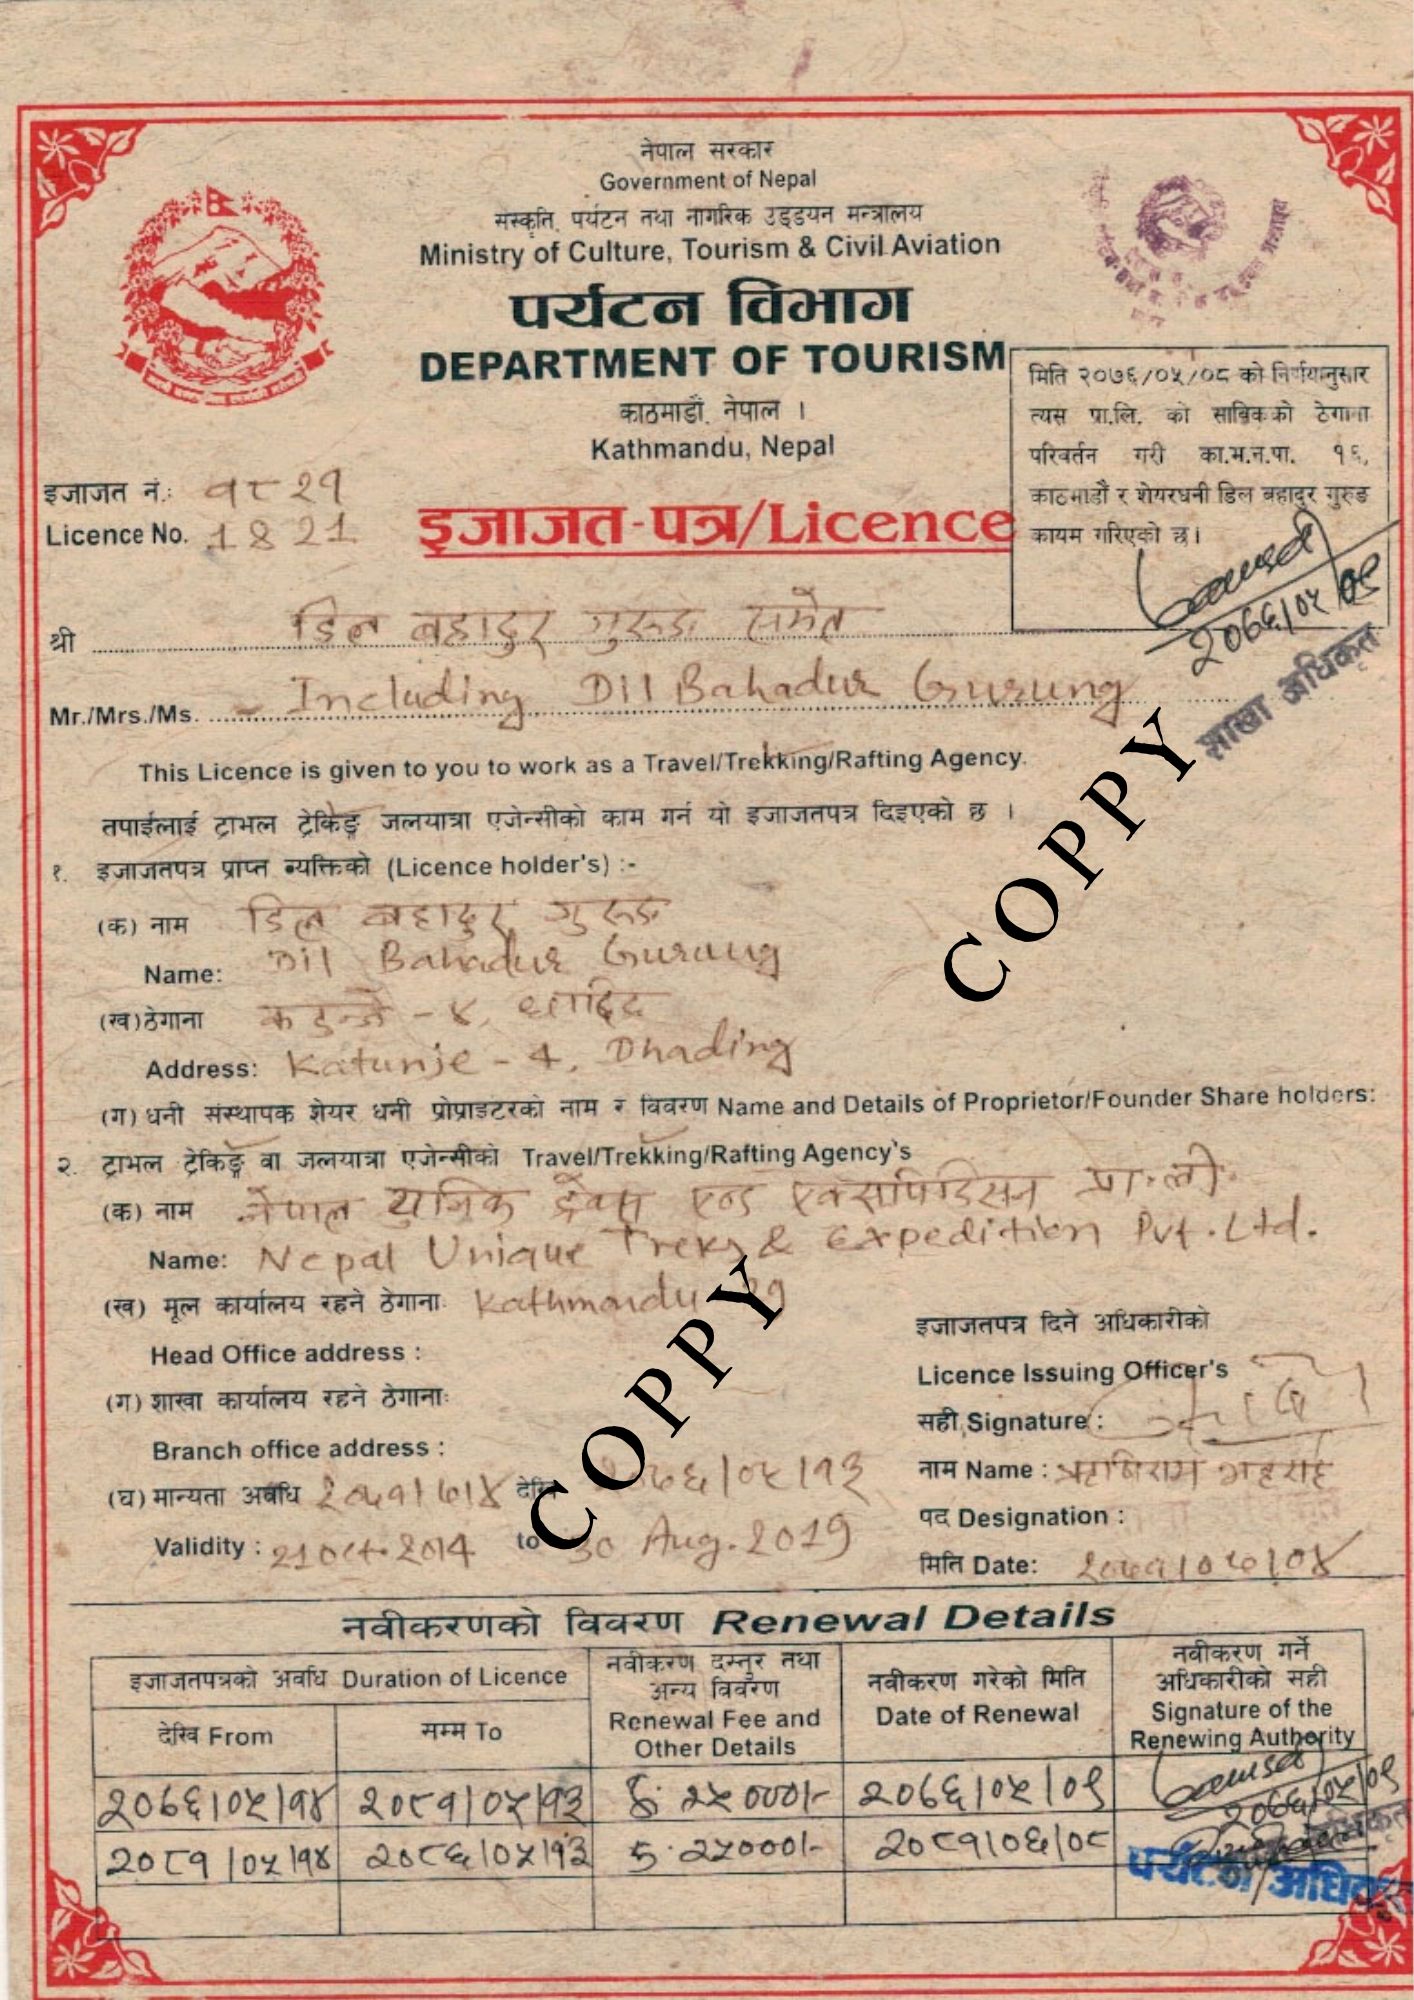 नेपाल सरकार
Government of Nepal
संस्कृति, पर्यटन तथा नागरिक उड्डयन मन्त्रालय
Ministry of Culture, Tourism & Civil Aviation
पर्यटन विभाग
DEPARTMENT OF TOURISM
काठमाडौं, नेपाल ।
Kathmandu, Nepal
मिति २०७६/०५/०८ को निर्णयानुसार
त्यस प्रा.लि. को साविकको ठेगाना
परिवर्तन गरी का.म.न.पा. १६,
काठमाडौं र शेयरधनी डिल बहादुर गुरुङ
कायम गरिएको छ।
२०७६/०५/०९
शाखा अधिकृत
इजाजत नं.: १८२१
Licence No. 1821
इजाजत-पत्र/Licence
श्री डिल बहादुर गुरुङ समेत
Mr./Mrs./Ms. - Including Dil Bahadur Gurung
This Licence is given to you to work as a Travel/Trekking/Rafting Agency.
तपाईलाई ट्राभल ट्रेकिङ्ग जलयात्रा एजेन्सीको काम गर्न यो इजाजतपत्र दिइएको छ ।
१. इजाजतपत्र प्राप्त व्यक्तिको (Licence holder's) :-
(क) नाम डिल बहादुर गुरुङ
Name: Dil Bahadur Gurung
(ख) ठेगाना कटुन्जे - ४, धादिङ
Address: Katunje - 4, Dhading
(ग) धनी संस्थापक शेयर धनी प्रोप्राइटरको नाम र विवरण Name and Details of Proprietor/Founder Share holders:
२. ट्राभल ट्रेकिङ्ग वा जलयात्रा एजेन्सीको Travel/Trekking/Rafting Agency's
(क) नाम नेपाल युनिक ट्रेक्स एण्ड एक्सपिडिसन प्रा.ली.
Name: Nepal Unique Treks & Expedition Pvt. Ltd.
(ख) मूल कार्यालय रहने ठेगानाः Kathmandu 29
Head Office address :
(ग) शाखा कार्यालय रहने ठेगानाः
Branch office address :
(घ) मान्यता अवधि २०७१/७/४ देखि २०७६/०५/१३
Validity : 21 Oct. 2014 to 30 Aug. 2019
इजाजतपत्र दिने अधिकारीको
Licence Issuing Officer's
सही Signature :
नाम Name : ऋषिराम भट्टराई
पद Designation :
मिति Date: २०७१/०७/०४
COPPY
COPPY
नवीकरणको विवरण Renewal Details
इजाजतपत्रको अवधि Duration of Licence
देखि From
सम्म To
नवीकरण दस्तुर तथा
अन्य विवरण
Renewal Fee and
Other Details
नवीकरण गरेको मिति
Date of Renewal
नवीकरण गर्ने
अधिकारीको सही
Signature of the
Renewing Authority
२०७६/०५/१४ २०८१/०५/१३ रु. २५०००/- २०७६/०५/०९ २०७६/०५/०९
२०८१/०५/१४ २०८६/०५/१३ रु. २५०००/- २०८१/०६/०८
पर्यटन अधिकृत